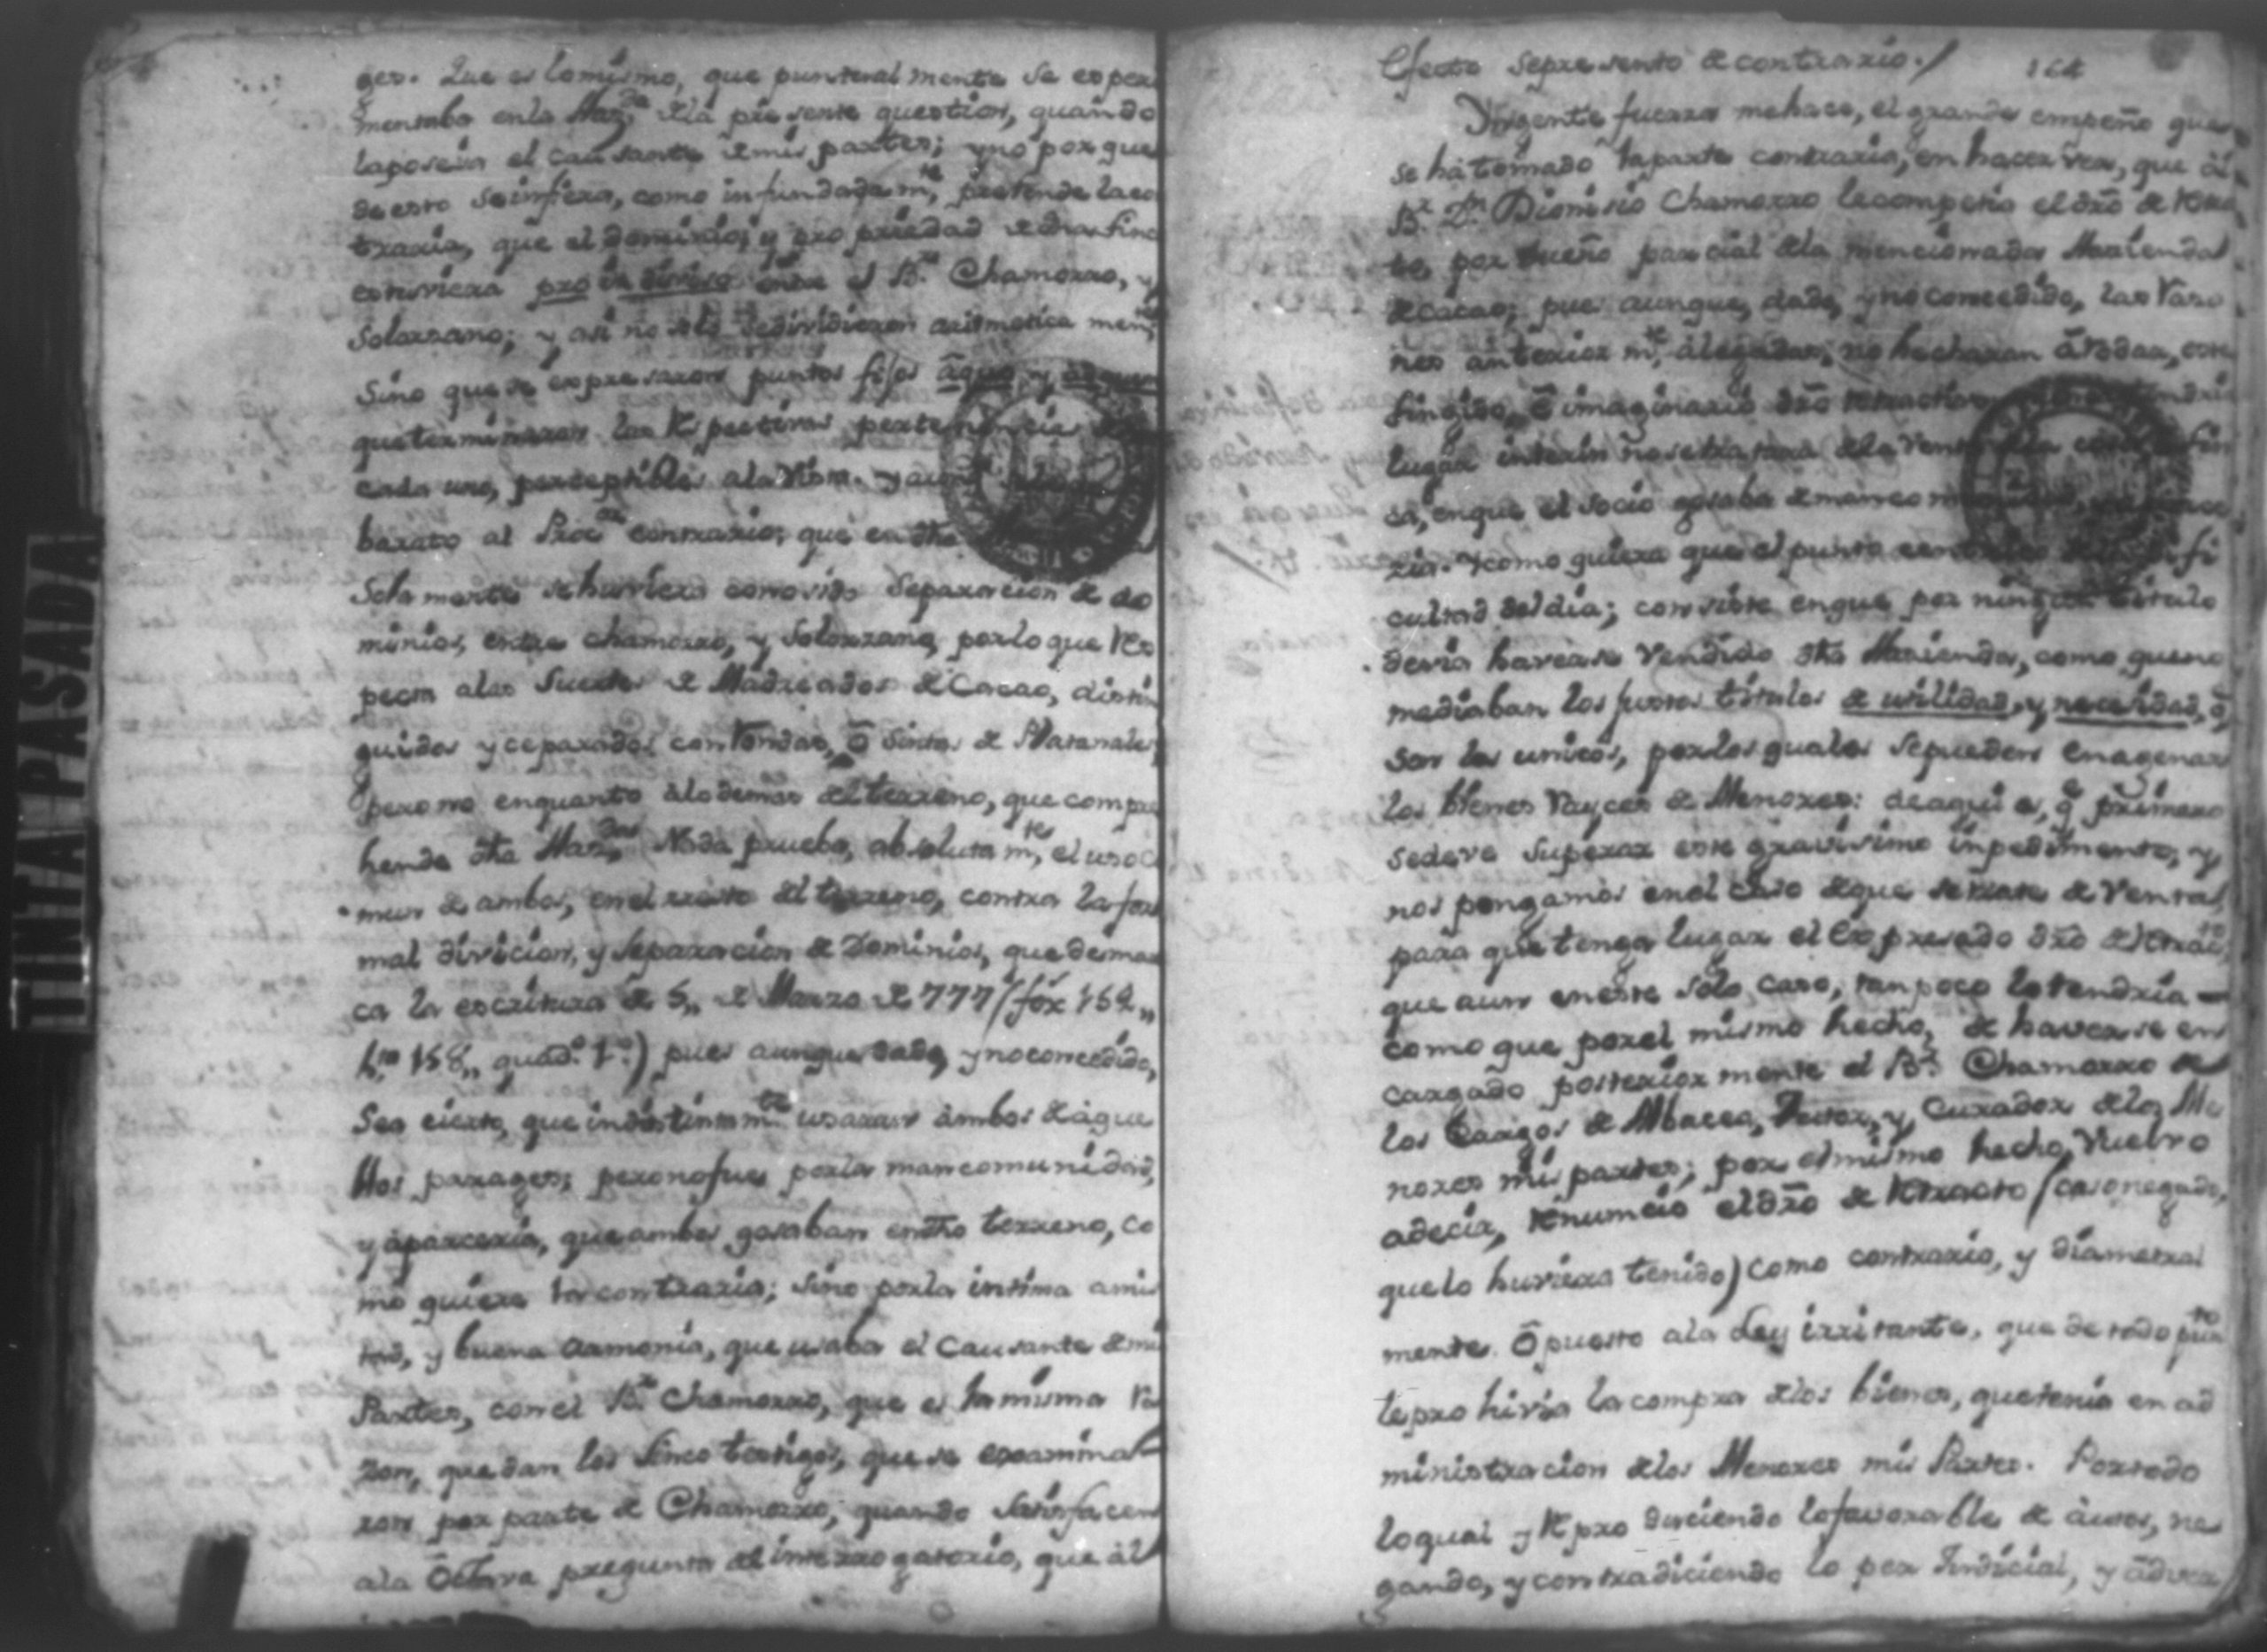 ges. Que es lo mismo, que puntual mente se exper
mentaba en la Haz.da de la presente question, quando
la poseia el causante de mis partes; y no por que
de esto se infiera, como infundada m.te pretende la co
traria, que el dominio, y propriedad de dha finc
estuviera pro in diviso entre el B.r Chamorro, y
Solorzano; y asi no solo se dividieron arismetica men.te
Sino que se expresaron puntos fijos à quo, y
que terminaron las Respectivas pertenencias
cada uno, perceptibles a la Vista. y aun
barato al Proc.or contrario, que en dha
Sola mente se huviera conosido Separacion de do
minios, entre Chamorro, y Solorzano, por lo que Res
pecta a las Suertes de Madreados de Cacao, distin
guidos y ceparados con Rondas, ô Sintas de Platanales
pero no en quanto à lo demas del terreno, que compre
hende dha Haz.da Nada prueba, absoluta m.te, el uso co
mun de ambos, en el resto del terreno, contra la for
mal divicion, y Separacion de Dominios, que demar
ca la escritura de 5,, de Marzo de 777 (fox 152,,
h.ta 158,, quad.o 1.o) pues aunque dado, y no concedido,
Sea cierto, que indistinta m.te usaran ambos de aque
llos parages; pero no fue, por la mancomunidad,
y aparceria, que ambos gosaban en dho terreno, co
mo quiere la contraria; Sino por la intima amis
tad, y buena armonia, que usaba el Causante de mis
Partes, con el B.r Chamorro, que es la misma Ra
zon, que dan los Sinco testigos, que se examina
ron por parte de Chamorro, quando Satisfacen
a la Octava pregunta del interrogatorio, que al
Efecto se presento de contrario./ 164
Vrgente fuerza me hace, el grande empeño que
se ha tomado la parte contraria, en hacer ver, que al
B.r D.n Dionisio Chamorro le competio el dro de Retra
to, por dueño parcial de la mencionada Hazienda
de cacao; pue aunque, dado, y no concedido, las Razo
nes anterior m.te alegadas, no hecharan à Rodar, este
fingido, ô imaginario dro
lugar interin no se tratara de la Venta
ca, en que el Socio gosaba de man co
ria. Y como quiera que el punto
cultad del dia; consiste en que por ningun titulo
devia haverse Vendido dha Hazienda, como que no
mediaban los justos titulos de utilidad, y necesidad, q.
son los unicos, por los quales se pueden Enagenar
los bienes Rayces de Menores: de aqui es, q.e primero
se deve Superar este gravisimo inpedimento, y
nos pongamos en el Caso de que se trate de Venta
para que tenga lugar el Expresado dro de Retracto
que aun en este solo caso, tan poco lo tendria –
como que por el mismo hecho, de haverse en
cargado posterior mente el B.r Chamorro de
los Cargos de Albacea, Tutor, y Curador de los Me
nores mis partes; por el mismo hecho, Vuelvo
a decir, Renuncio el dro de Retracto (caso negado,
que lo huviera tenido) como contrario, y diametral
mente Ôpuesto a la Ley irritante, que de todo punto
te pro hivia la compra de los bienes, que tenia en ad
ministracion de los Menores mis Partes. Por todo
lo qual y Repro duciendo lo favorable de àutos, ne
gando, y contradiciendo lo per Judicial, y àdver
TINTA PASADA